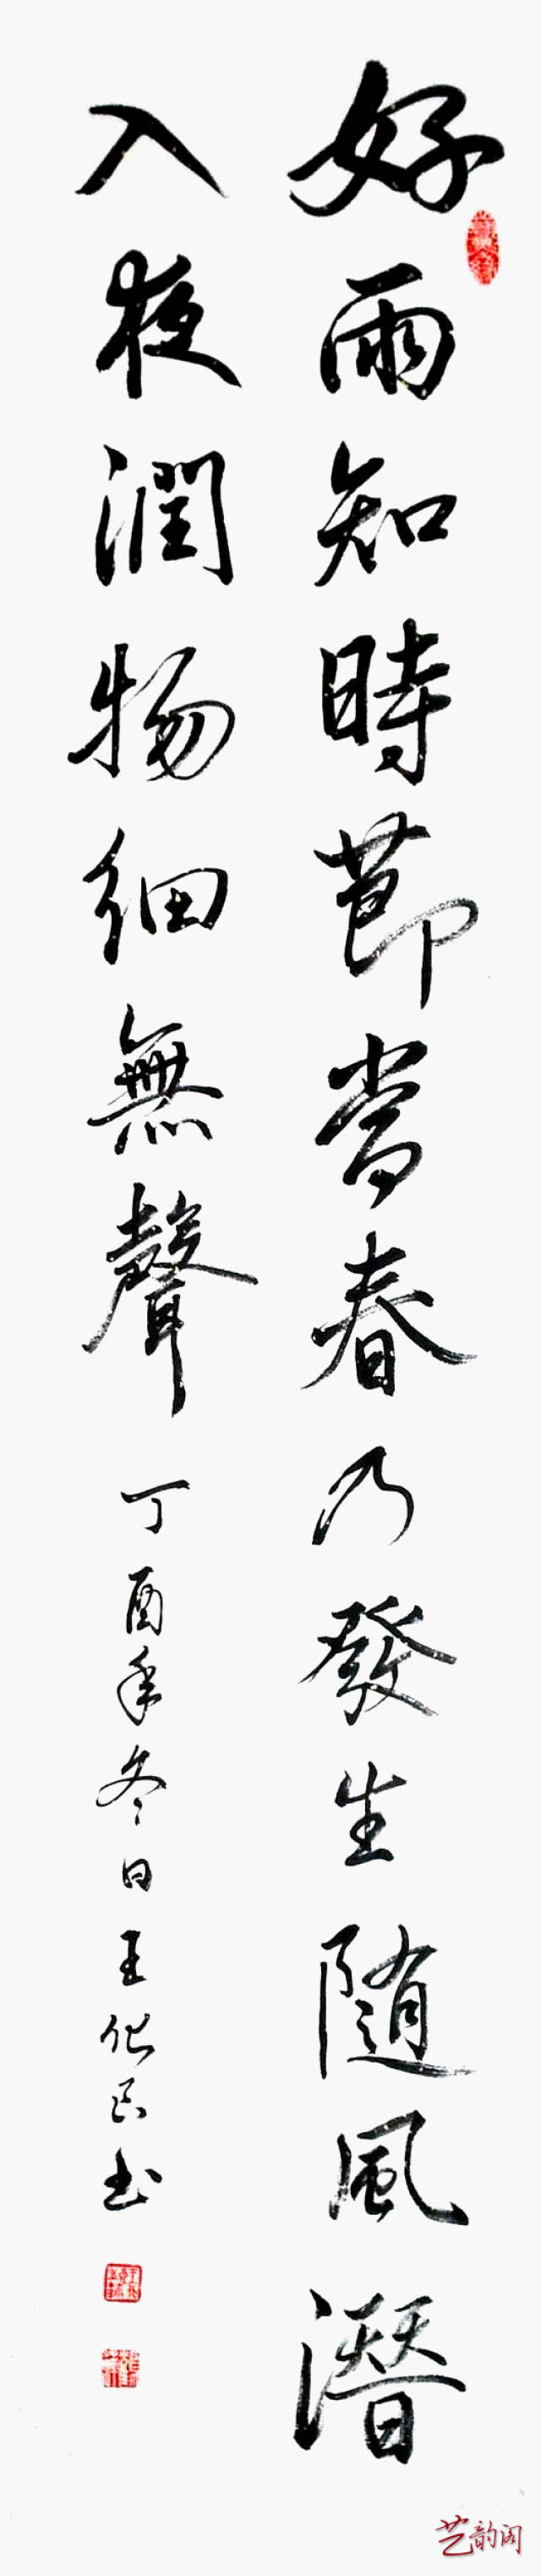 好雨知時節當春乃發生隨風潛
入夜潤物細無聲
丁酉年冬日王化民书
艺韵阁